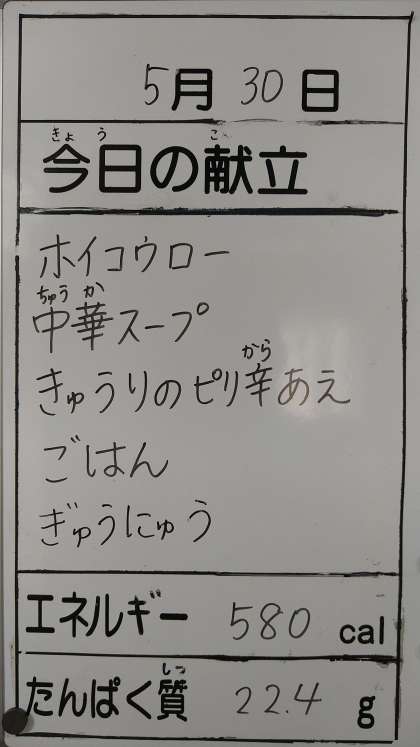 5月30日
きょう こ
今日の献立
ホイコウロー
ちゅう か
中華スープ
から
きゅうりのピリ辛あえ
ごはん
ぎゅうにゅう
エネルギー 580 cal
しつ
たんぱく質 22.4 g